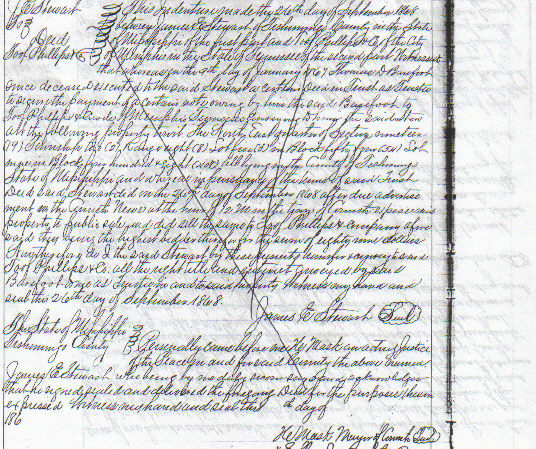 J E Stewart
To
Deed
Jos Phillips & Co
This Indenture made the 26th day of September 1868
between James E Stewart of Tishomingo County in the State
of Mississippi of the first part and Jos Phillips & Co of the City
of Memphis in the State of Tennessee of the second part Witnesseth
that whereas on the 9th day of January 1867 Thomas D Barfoot
since deceased executed to the said Stewart a certain Deed in Trust as Trustee
to secure the payment of a certain note owing by him the said Barfoot to
Jos Phillips & Co of Memphis Tennessee conveying to him the said Stewart
all the following property to wit The North East quarter of Section nineteen
(19) Township two (2) Range eight (8) Lot five (5) in Block fifty four (54) Lot
in Block four hundred & eight (408) all lying in the County of Tishomingo
State of Mississippi and whereas in pursuance of the terms of said Trust
Deed said Stewart did on the 26th day of September 1868 after due advertise
ment in the Corinth News at the hour of 12 M in the Town of Corinth expose said
property to public sale and did sell the same to Jos Phillips & company afore
said they being the highest bidder therefor for the sum of eighty nine dollars
Now therefore I the said Stewart by these presents transfer & convey to said
Jos Phillips & Co. all the right title and interest conveyed by said
Barfoot to me as Trustee and to said property Witness my hand and
seal this 26th day of September 1868.
James E Stewart Seal
The State of Mississippi
Tishomingo County
Personally came before me He Mask an acting Justice
of the Peace in and for said County the above named
James E Stewart who being by me duly sworn says and acknowledges
that he signed sealed and delivered the foregoing Deed for the purposes therein
expressed Witness my hand and seal this day of
186
He Mask Mayor of Corinth Seal